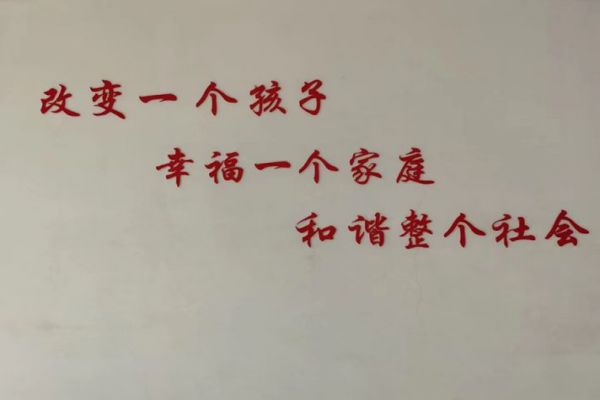 改变一个孩子
幸福一个家庭
和谐整个社会